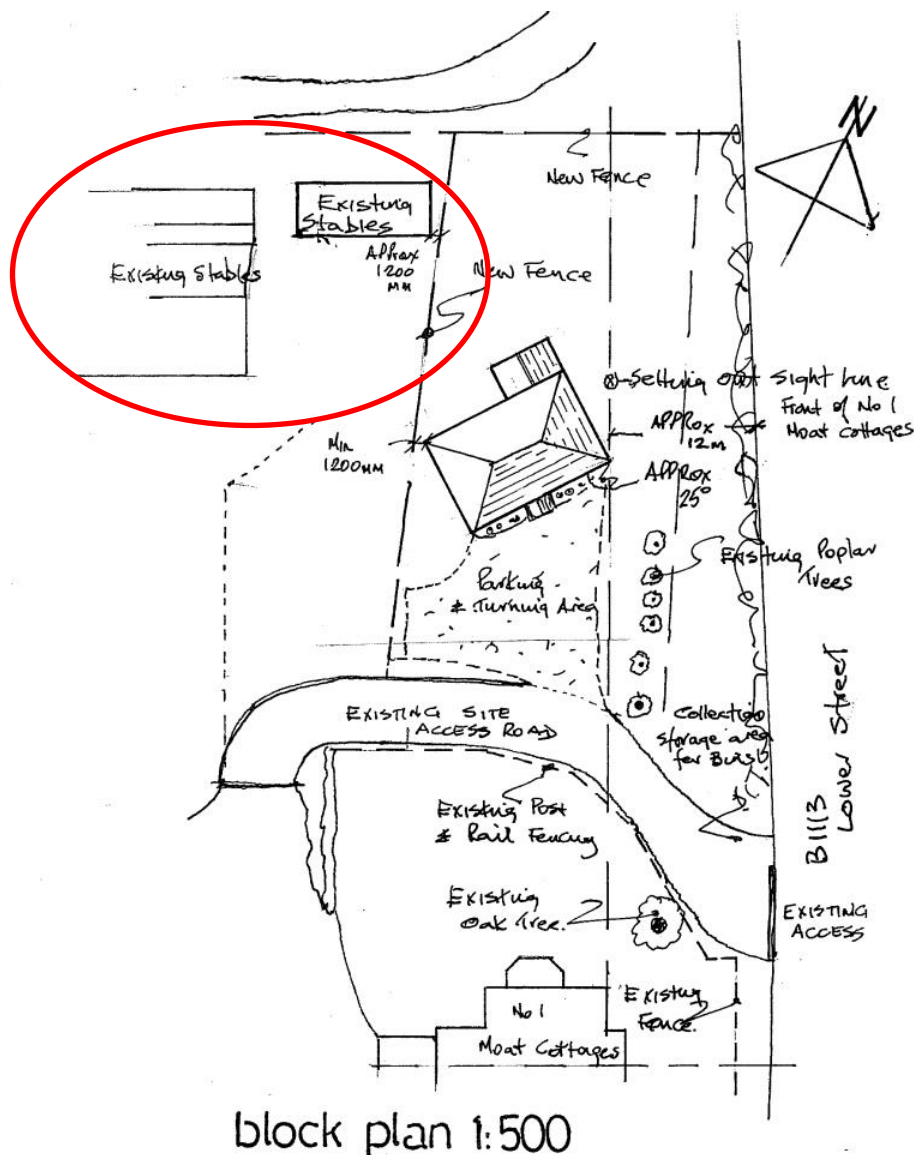 N
New Fence
Existing
Stables
Existing Stables
Approx
1200
MM
New Fence
Setting out sight line
Front of No 1
Moat Cottages
Approx
12m
Min
1200MM
Approx
25°
Existing Poplar
Trees
Parking
& Turning Area
EXISTING SITE
ACCESS ROAD
Collection
storage area
for Bins
B1113
Lower Street
Existing Post
& Rail Fencing
Existing
Oak Tree.
EXISTING
ACCESS
Existing
Fence.
No 1
Moat Cottages
block plan 1:500